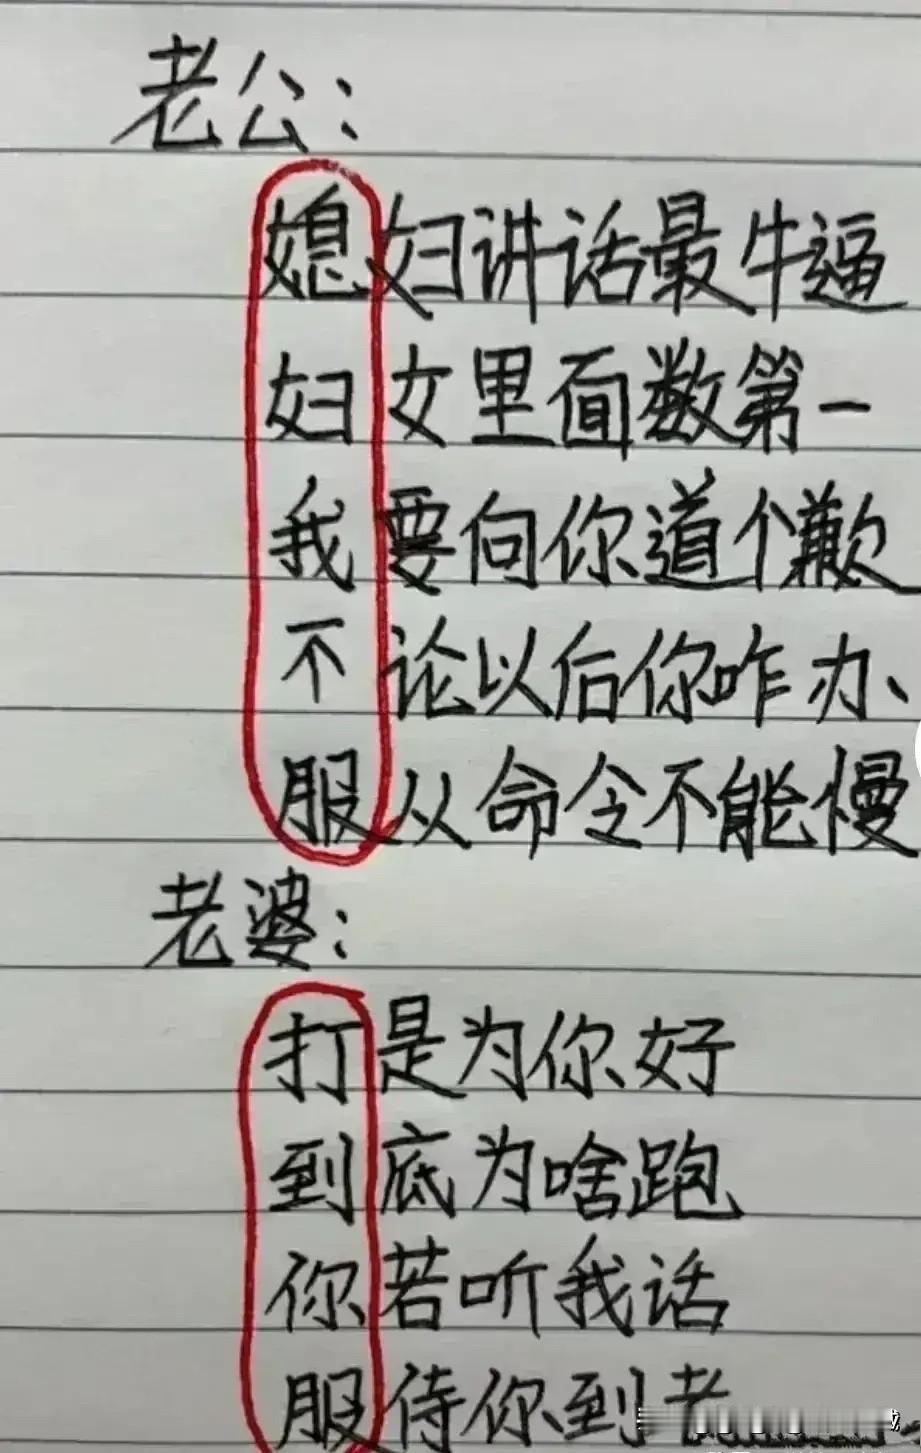 老公：
媳妇讲话最牛逼
妇女里面数第一
我要向你道个歉
不论以后你咋办、
服从命令不能慢
老婆：
打是为你好
到底为啥跑
你若听我话
服侍你到老